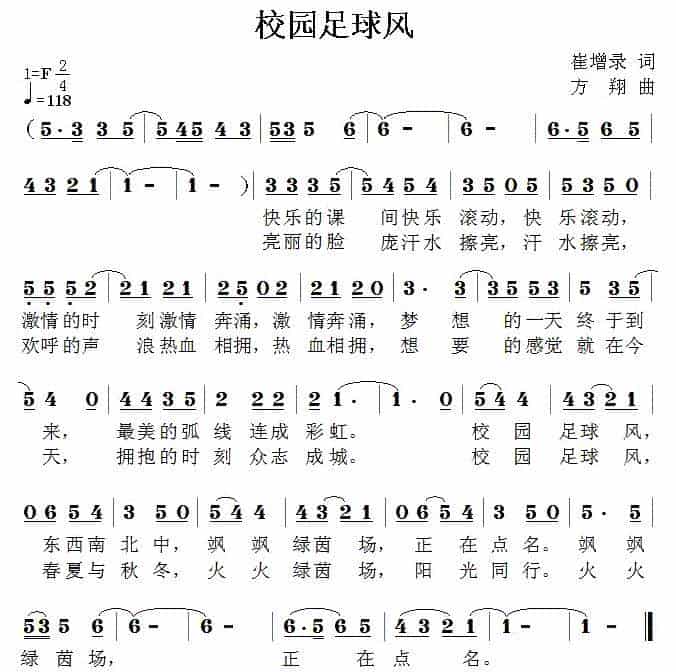 校园足球风
1=F 2/4
崔增录 词
♩=118
方 翔 曲
( 5· 3 3 3 5 | 5 45 4 3 | 53 5 6 | 6 - | 6 - | 6· 5 6 5 |
4 3 2 1 | 1 - | 1 - ) | 3 3 3 5 | 5 4 5 4 | 3 5 0 5 | 5 3 5 0 |
快乐的课 间快乐 滚动，快 乐滚动，
亮丽的脸 庞汗水 擦亮，汗 水擦亮，
5 5 5 2 | 2 1 2 1 | 2 5 0 2 | 2 1 2 0 | 3· 3 | 3 5 5 3 | 5 3 5 |
激情的时 刻激情 奔涌，激 情奔涌，梦 想 的一天 终于到
欢呼的声 浪热血 相拥，热 血相拥，想 要 的感觉 就在今
5 4 0 | 4 4 3 5 | 2 2 2 | 2 1· | 1· 0 | 5 4 4 | 4 3 2 1 |
来， 最美的弧 线 连成 彩虹。 校 园 足球 风，
天， 拥抱的时 刻 众志 成城。 校 园 足球 风，
0 6 5 4 | 3 5 0 | 5· 5 | 4 3 2 1 | 0 6 5 4 | 3 5 0 | 5· 5 |
东西南 北中， 飒 飒 绿茵 场， 正 在点 名。 飒 飒
春夏与 秋冬， 火 火 绿茵 场， 阳 光同 行。 火 火
53 5 6 | 6 - | 6· 5 6 5 | 4 3 2 1 | 1 - ‖
绿 茵 场， 正 在 点 名。